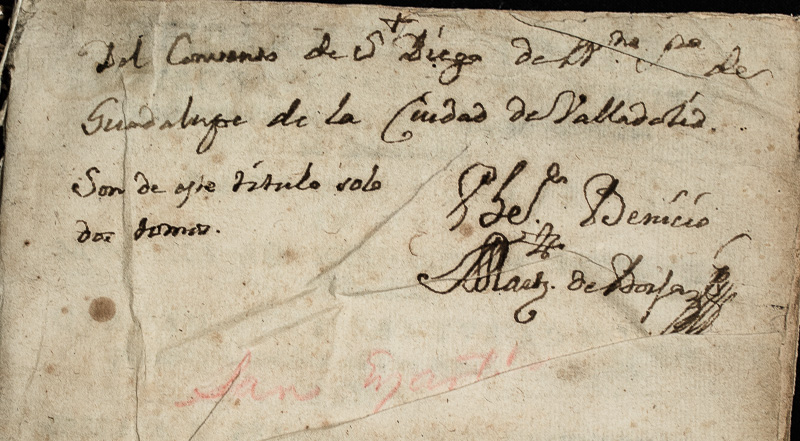 Del Convento de S. Diego de N. de
Guadalupe de la Ciudad de Valladolid.
Son de este titulo solo
dos tomos.
Phe. Benicio
Martz. de Borja
San